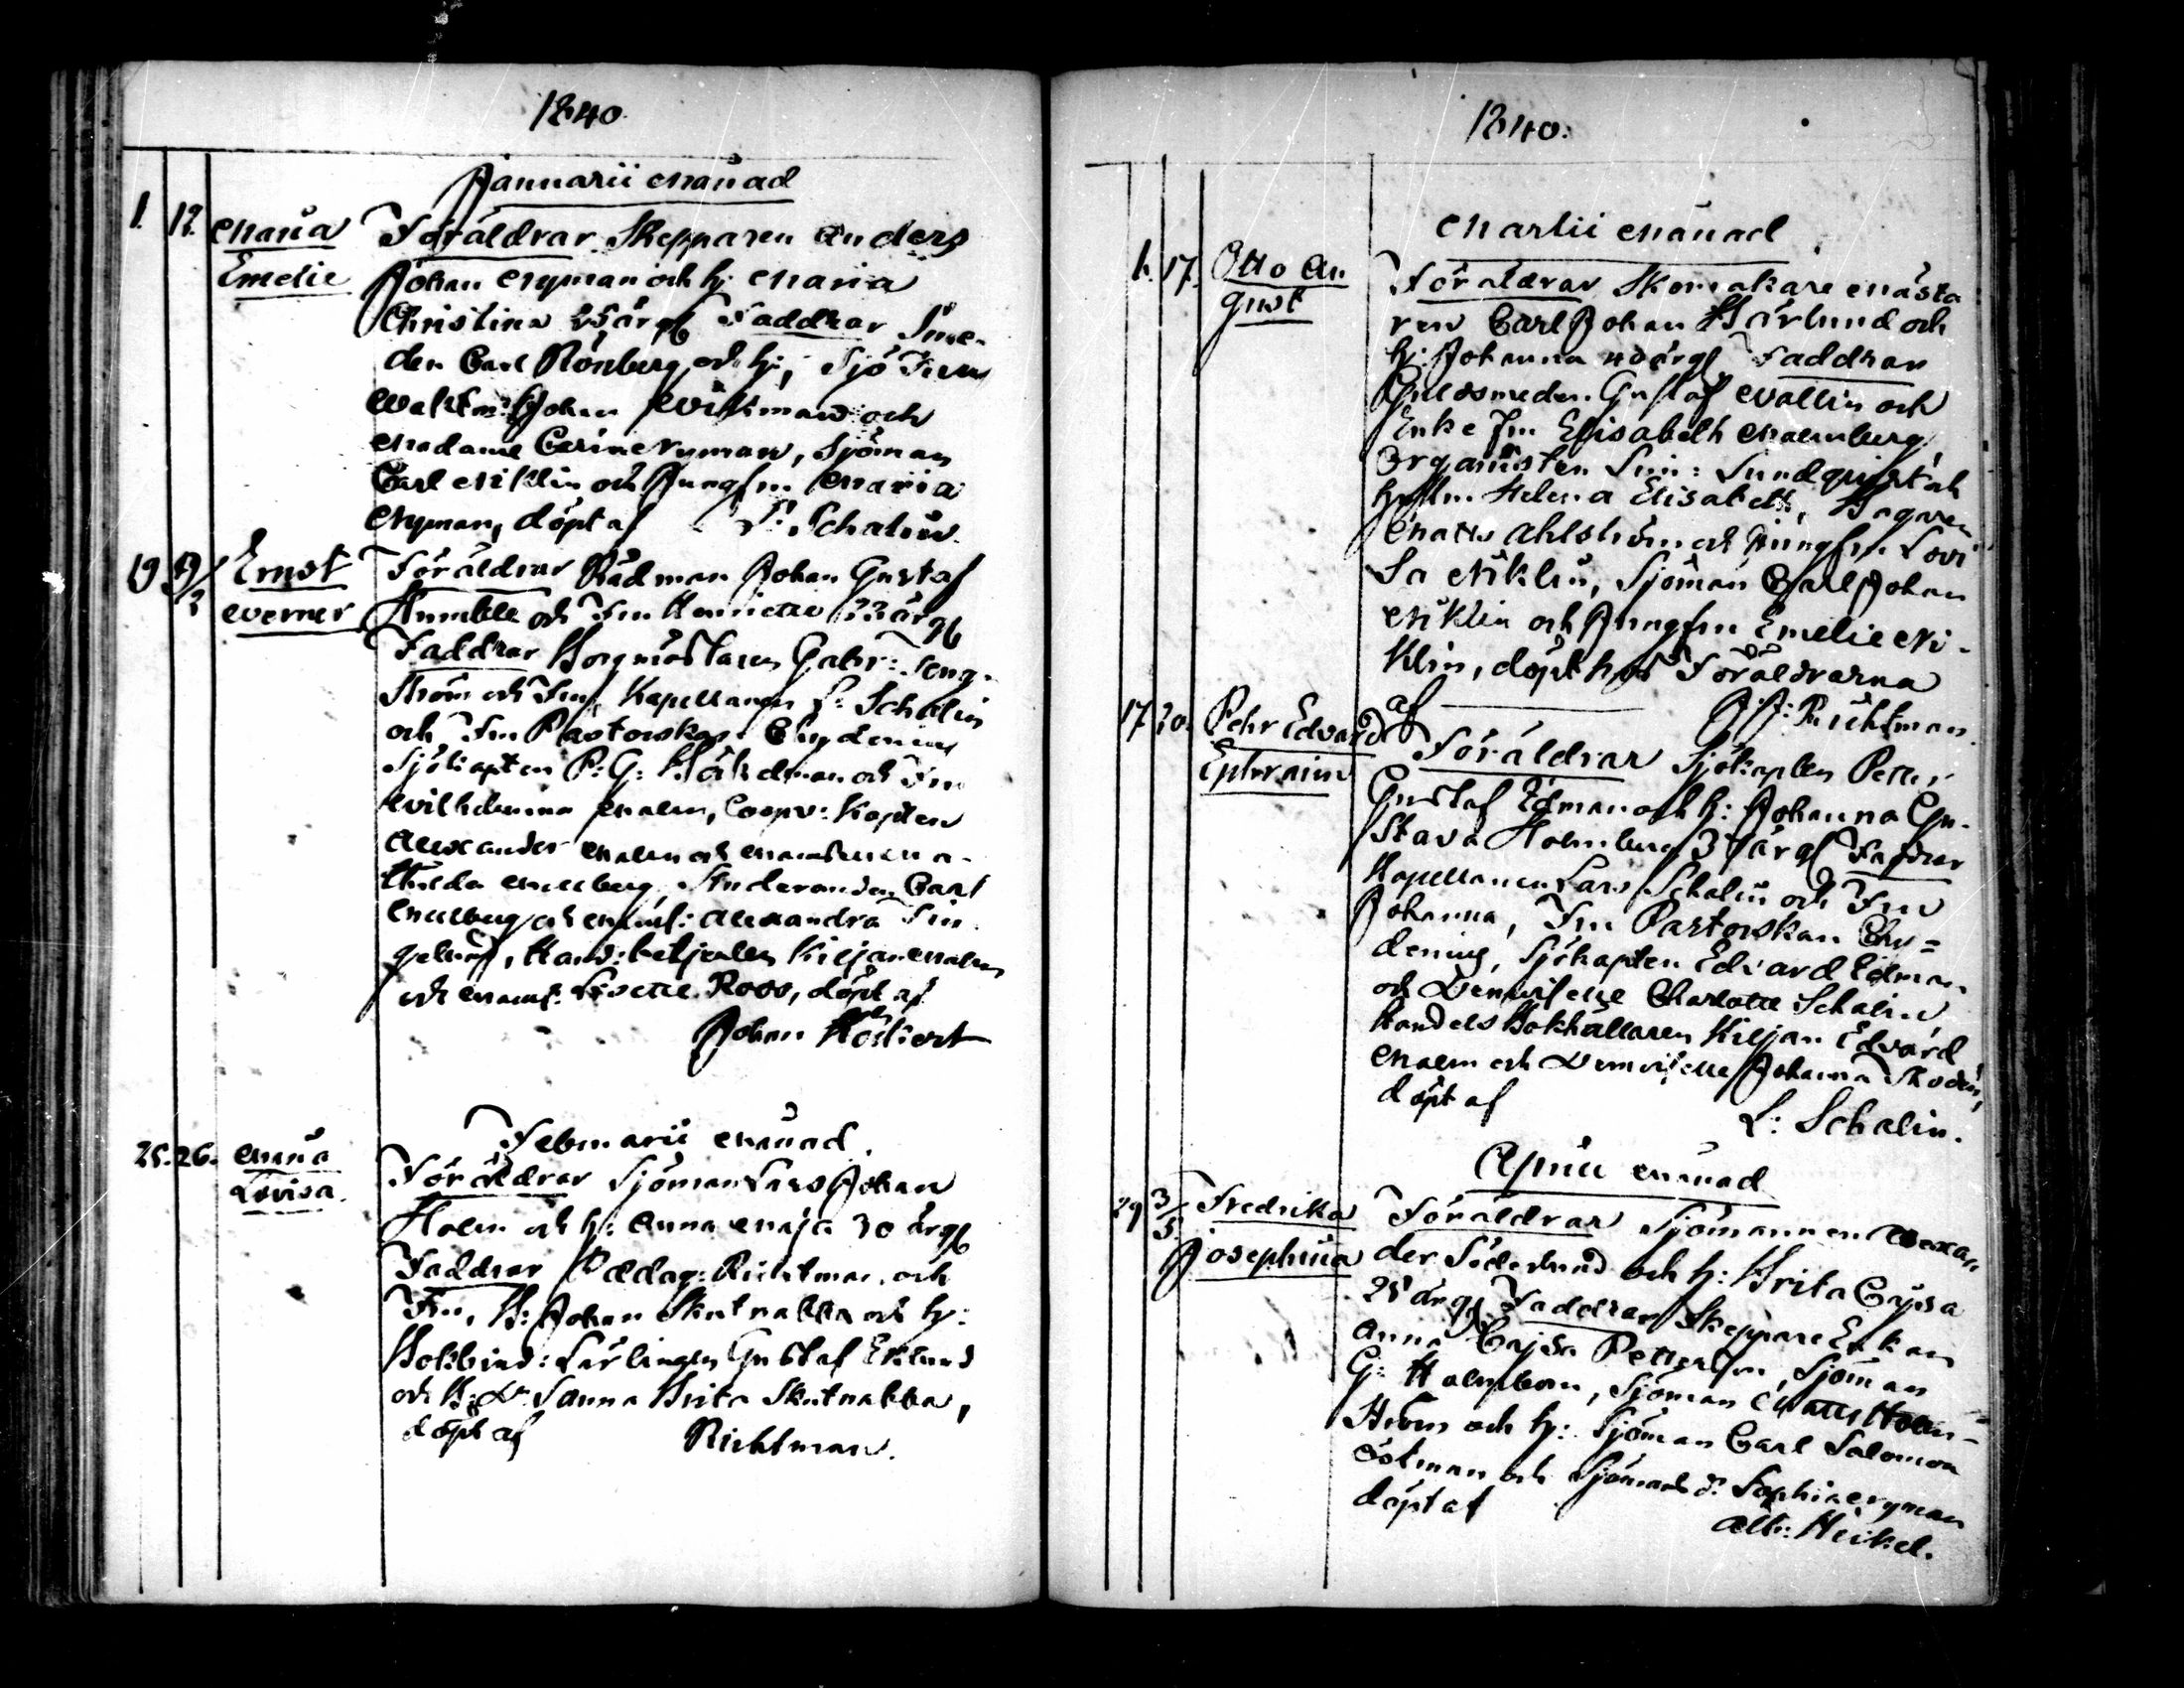 1840.
Januarii Månad
1. 12. Maria Föräldrar Skepparen Anders
Emelie Johan Nyman och h: Maria
Christina 25 årg Faddrar Sme-
den Carl Rönberg och h:, Sjö Tull
Vaktm: Johan Wikman och
Madame Carin Nyman, Sjöman
Carl Niklin och Jungfru Maria
Nyman, döpt af L: Schalin.
19 9/2 Ernst Föräldrar Rådman Johan Gustaf
Werner Humble och Fru Henriette 33 årg
Faddrar Borgmästaren Gabr: Teng-
ström och Fru, Kapellanen L: Schalin
och Fru Pastorskan Chydenius
Sjökapten P: G: och Fru
Wilhelmina Malm, Coopv: Kapten
Alexander Malm och Mamsell Ma-
thilda Mellberg, Studeranden Carl
Mellberg och Mams: Alexandra
Hand: betjenten Kiljan Malm
och Mams: Lisette Roos, döpt af
Johan
Februarii Månad.
25. 26. Maria Föräldrar Sjöman Lars Johan
Lovisa. Holm och h: Anna Maja 30 årg
Faddrar Pædag: Richtman och
Fru, B: Johan Skutnabba och h:
Bokbind: Lärlingen Gustaf Eklund
och B: Dr Sanna Brita Skutnabba,
döpt af Richtman.
1840.
Martii Månad
1. 17. Otto Au Föräldrar Skomakare Mästa
gust ren Carl Johan Härlund och
h: Johanna 40 årg Faddrar
Guldsmeden Gustaf Wallin och
Enke Fru Elisabeth Malmberg,
Organisten Sim: Sundqvist och
Helena Elisabeth, Bagaren
Matts Ahlström och Jungfru Lovi
sa Niklin, Sjöman Carl Johan
Niklin och Jungfru Emelie Ni-
klin, döpt hos Föräldrarna
af J: J: Richtman.
17 20. Pehr Edvard Föräldrar Sjökapten Petter
Ephraim Gustaf Edman och h: Johanna Gu-
stava Holmberg 37 årg Faddrar
Kapellanen Lars Schalin och Fru
Johanna, Fru Pastorskan Chy=
denius, Sjökapten Edvard Edman
och Demoiselle Charlotte Schalin,
Handels Bokhållaren Kiljan Edvard
Malm och Demoiselle Johanna
döpt af
L: Schalin.
April Månad
29 3/5 Fredrika Föräldrar Sjömannen Alexan
Josephina der Söderlund och h: Brita Cajsa
25 årg Faddrar Skeppare Enkan
Anna Cajsa Petterson, Sjöman
G: Holmbom, Sjöman Matts Holm-
ström och h: Sjöman Carl Salomon
Östman och Sjömans d: Sophia Nyman
döpt af
Alb: Heikel.